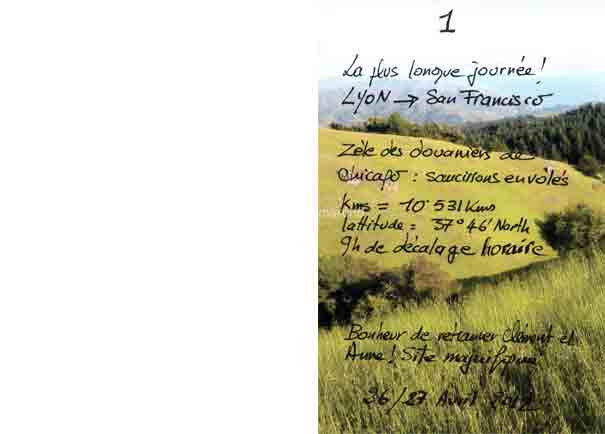 1
La plus longue journée!
LYON → San Francisco
Zèle des douaniers de
Chicago : saucissons envolés
kms = 10 531 Kms
lattitude = 37°46' North
9h de décalage horaire
Bonheur de retrouver Clément et
Anne! Site magnifique
26/27 Avril 2012